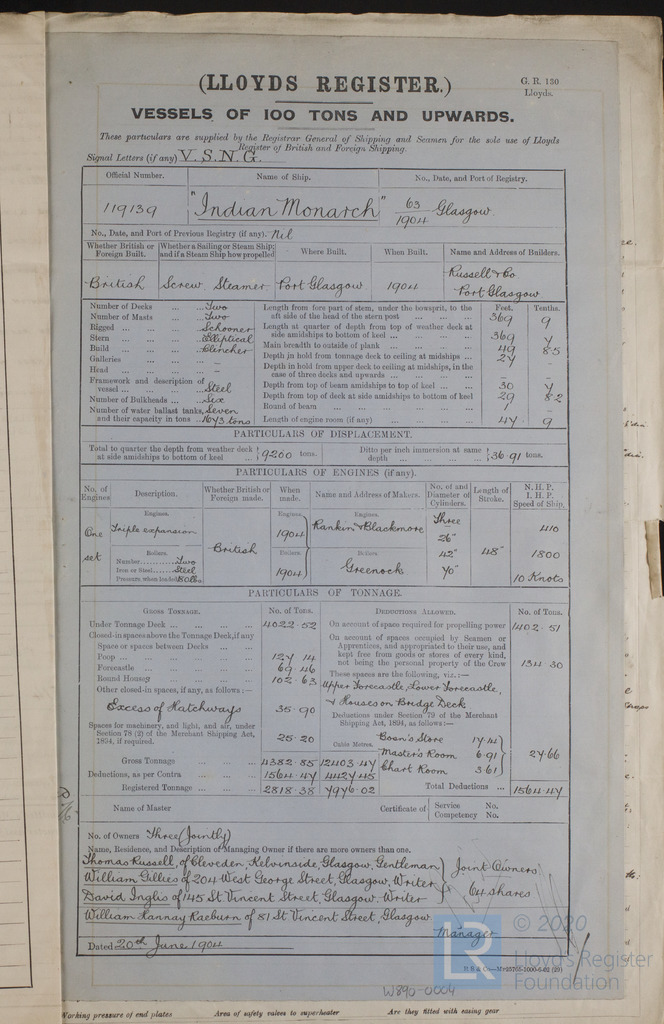 (LLOYDS REGISTER.)
G. R. 130
Lloyds.
VESSELS OF 100 TONS AND UPWARDS.
These particulars are supplied by the Registrar General of Shipping and Seamen for the sole use of Lloyds
Register of British and Foreign Shipping.
Signal Letters (if any) V.S.N.G.
Official Number. Name of Ship. No., Date, and Port of Registry.
119139 "Indian Monarch" 63/1904 Glasgow.
No., Date, and Port of Previous Registry (if any). Nil
Whether British or Foreign Built. Whether a Sailing or Steam Ship; and if a Steam Ship how propelled Where Built. When Built. Name and Address of Builders.
British Screw Steamer Port Glasgow 1904 Russell & Co Port Glasgow
Feet. Tenths.
Number of Decks ... Two Length from fore part of stem, under the bowsprit, to the aft side of the head of the stern post ... 369 9
Number of Masts ... Two
Rigged ... Schooner Length at quarter of depth from top of weather deck at side amidships to bottom of keel ... 369 7
Stern ... Elliptical Main breadth to outside of plank ... 49 85
Build ... Clencher Depth in hold from tonnage deck to ceiling at midships ... 27 –
Galleries ... – Depth in hold from upper deck to ceiling at midships, in the case of three decks and upwards ... – –
Head ... –
Framework and description of vessel ... Steel Depth from top of beam amidships to top of keel ... 30 7
Number of Bulkheads ... Six Depth from top of deck at side amidships to bottom of keel 29 82
Number of water ballast tanks, Seven Round of beam ... 1 –
and their capacity in tons ... 1673 tons Length of engine room (if any) ... 47 9
PARTICULARS OF DISPLACEMENT.
Total to quarter the depth from weather deck at side amidships to bottom of keel ... 9200 tons. Ditto per inch immersion at same depth ... 36.91 tons.
PARTICULARS OF ENGINES (if any).
No. of Engines Description. Whether British or Foreign made. When made. Name and Address of Makers. No. of and Diameter of Cylinders. Length of Stroke. N. H. P. I. H. P. Speed of Ship.
Engines. Engines. Engines.
One set Triple expansion British 1904 Rankin & Blackmore Three 26" 42" 70" 48" 410
Boilers. Boilers. Boilers.
Number ... Two 1904 Greenock 1800
Iron or Steel ... Steel
Pressure when loaded 180 lbs 10 Knots
PARTICULARS OF TONNAGE.
GROSS TONNAGE. No. of Tons. DEDUCTIONS ALLOWED. No. of Tons.
Under Tonnage Deck ... 4022.52 On account of space required for propelling power 1402.51
Closed-in spaces above the Tonnage Deck, if any On account of spaces occupied by Seamen or Apprentices, and appropriated to their use, and kept free from goods or stores of every kind, not being the personal property of the Crew 134.30
Space or spaces between Decks ...
Poop ... 127.14
Forecastle ... 69.46
Round Houses ... 102.63 These spaces are the following, viz.:—
Other closed-in spaces, if any, as follows:— Upper Forecastle, Lower Forecastle,
Excess of Hatchways 35.90 & Houses on Bridge Deck
Deductions under Section 79 of the Merchant Shipping Act, 1894, as follows:—
Spaces for machinery, and light, and air, under Section 78 (2) of the Merchant Shipping Act, 1894, if required. 25.20 Cubic Metres. Bosn's Store 17.14
Master's Room 6.91 27.66
Gross Tonnage ... 4382.85 12403.47 Chart Room 3.61
Deductions, as per Contra ... 1564.47 4427.45
Registered Tonnage ... 2818.38 7976.02 Total Deductions ... 1564.47
Name of Master Certificate of Service No.
Competency No.
No. of Owners Three (Jointly)
Name, Residence, and Description of Managing Owner if there are more owners than one.
Thomas Russell, of Cleveden, Kelvinside, Glasgow, Gentleman Joint Owners
William Gillies of 204 West George Street, Glasgow, Writer
David Inglis of 145 St Vincent Street, Glasgow. Writer 64 shares
William Hannay Raeburn of 81 St Vincent Street, Glasgow.
Manager
Dated 20th June 1904
© 2020
LR
Lloyd's Register
Foundation
W890-0004
Working pressure of end plates Area of safety valves to superheater Are they fitted with easing gear